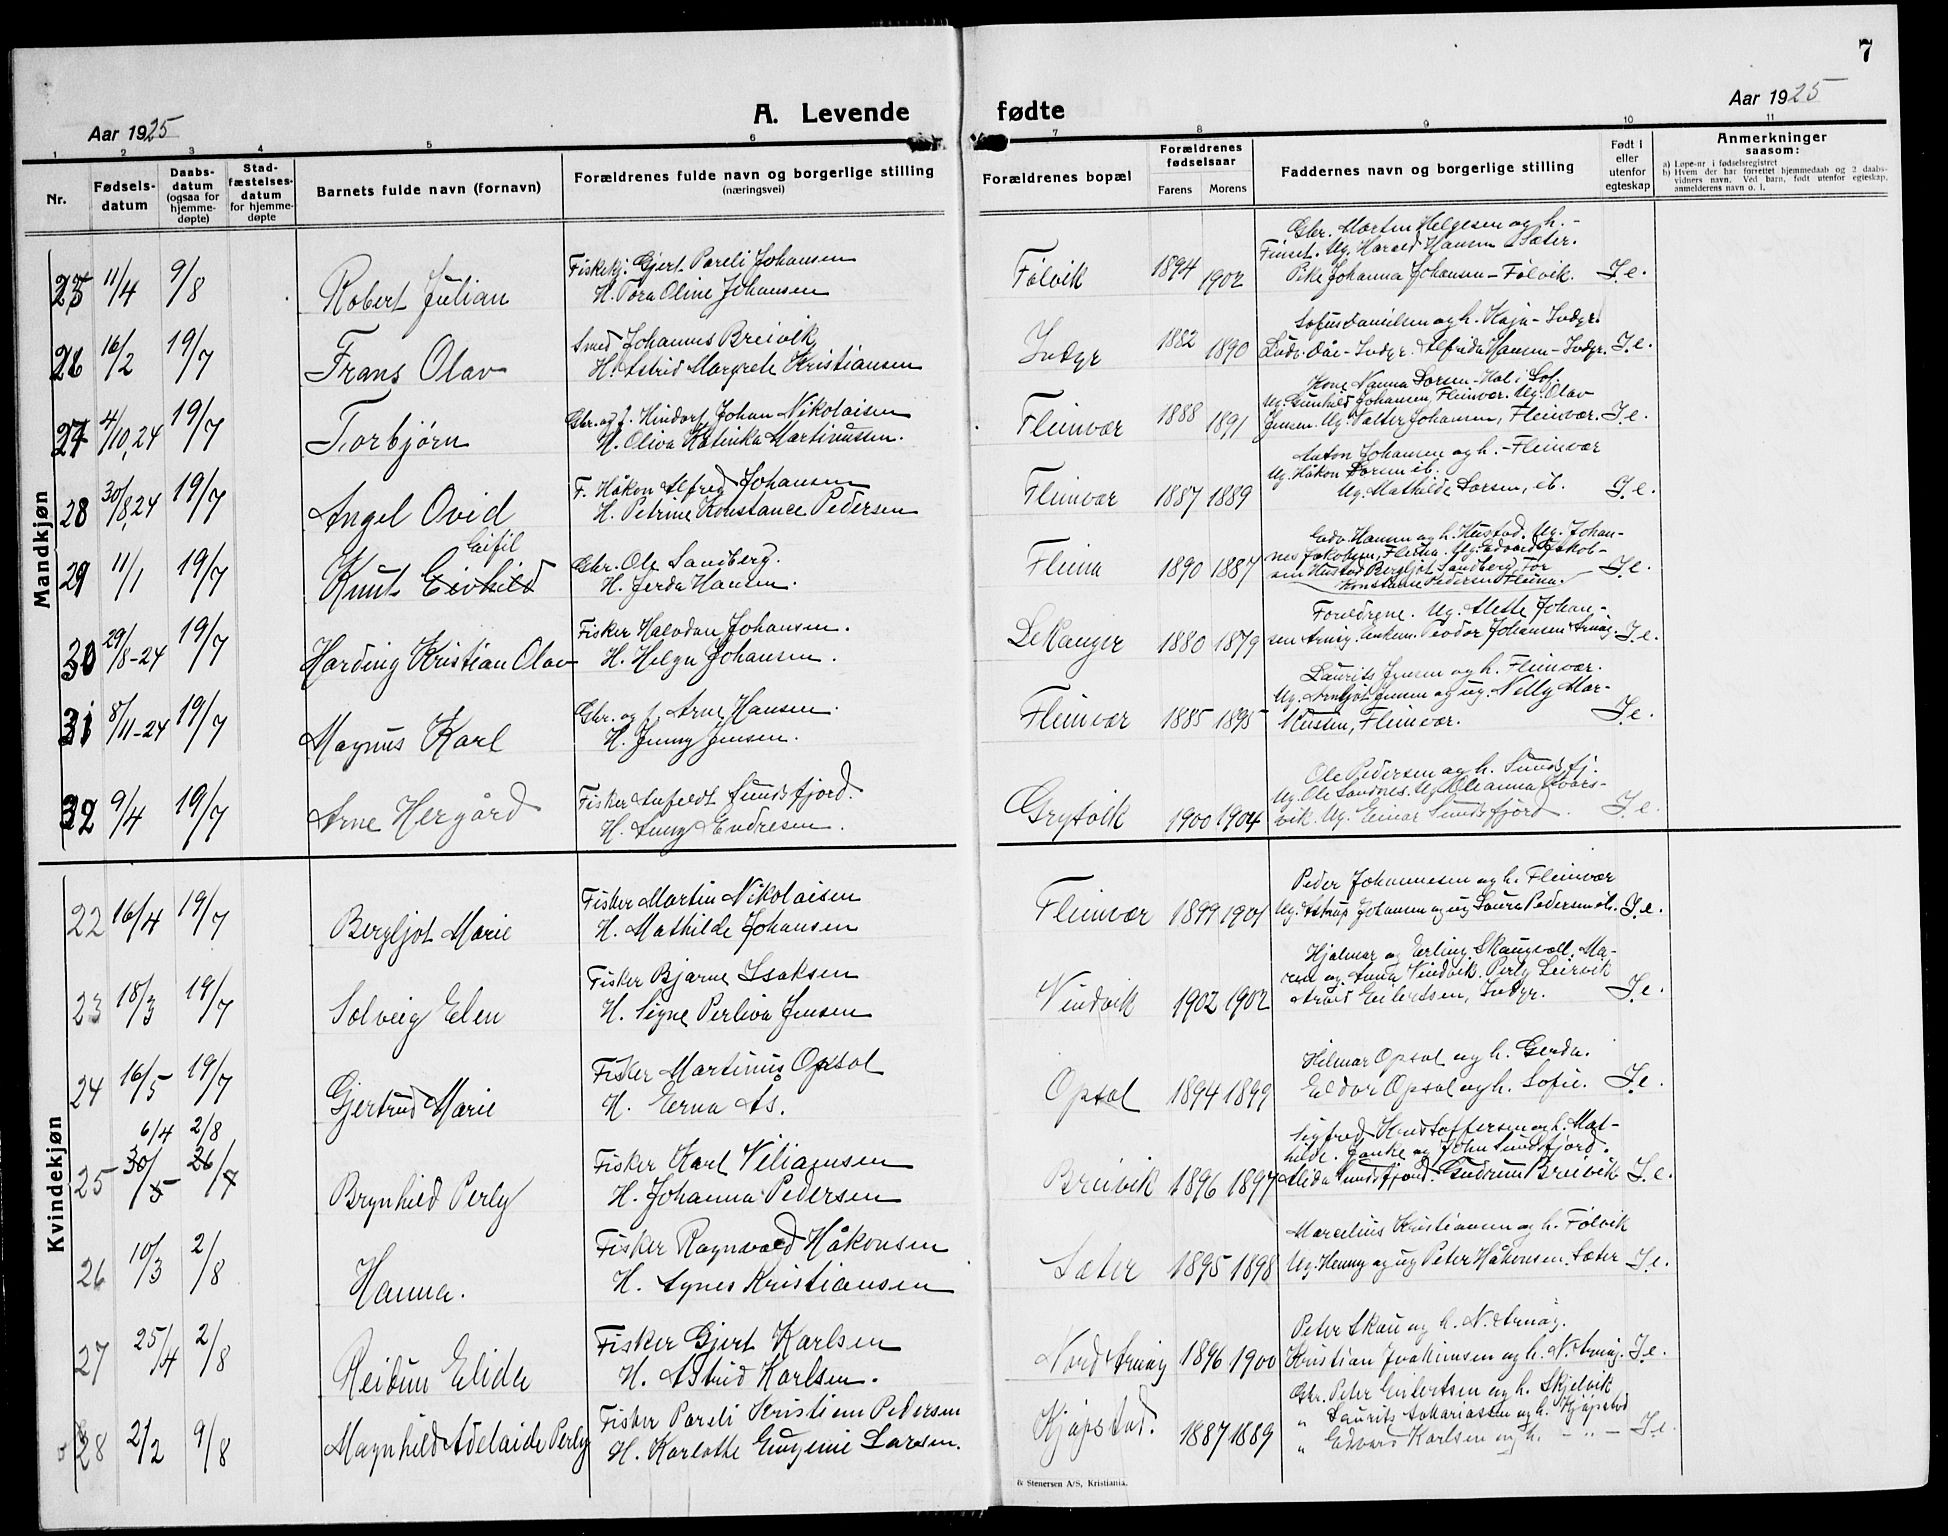 7
A. Levende fødte
Aar 1925
Aar 1925
1 2 3 4 5 6 7 8 9 10 11
Nr.
Fødsels-
datum
Daabs-
datum
(ogsaa for
hjemme-
døpte)
Stad-
fæstelses-
datum
for hjemme-
døpte
Barnets fulde navn (fornavn)
Forældrenes fulde navn og borgerlige stilling
(næringsvei)
Forældrenes bopæl
Forældrenes
fødselsaar
Farens Morens
Faddernes navn og borgerlige stilling
Født i
eller
utenfor
egteskap
Anmerkninger
saasom:
a) Løpe-nr. i fødselsregistret
b) Hvem der har forrettet hjemmedaab og 2 daabs-
vidners navn. Ved barn, født utenfor egteskap,
anmelderens navn o. l.
Mandkjøn
25 11/4 9/8 Robert Julian
Fiskekj. Gjert Pareli Johansen
H. Tora Oline Johansen
Følvik 1894 1902
Gbr. Morten Helgesen og h. -
Finset. Ug. Harald Hansen Sæter.
Pike Johanna Johansen - Følvik. I e.
26 16/2 19/7 Frans Olav
Smed Johannes Breivik
H. Astrid Margrete Kristiansen
Indyr 1882 1890
Sofus Danielsen og h. Kaja - Indyr.
Ludv. Dåe - Indyr. Alfrida Hansen - Indyr. I e.
27 4/10,24 19/7 Torbjørn
Gbr. og f. Hindorf Johan Nikolaisen
H. Oliva Katinka Martinussen.
Fleinvær 1888 1891
Kone Nanna Dorsen
Ug. Gunhild Johansen, Fleinvær. Ug. Olav
Jensen. Ug. Valter Johansen, Fleinvær. I e.
28 30/8,24 19/7 Angel Ovid
F. Håkon Alfred Johansen
H. Petrine Konstance Pedersen
Fleinvær 1887 1889
Anton Johansen og h. - Fleinvær
Ug. Håkon Dorsen ib.
Ug. Mathilde Dorsen, ib. I e.
29 11/1 19/7 Knut Eivhild
Leifil
Gbr. Ole Sandberg.
H. Jerda Hansen.
Fleina 1890 1887
Edv. Hansen og h. Hustad. Ug. Johan-
nes Jakobsen, Fleina. Ug. Edvard Jakob-
sen Hustad Bergljot Sandberg, Tor
Konstanse Pedersen Fleina. I e.
30 29/8-24 19/7 Harding Kristian Olav
Fisker Halvdan Johansen.
H. Helga Johansen.
Lekanger 1880 1879
Foreldrene. Ug. Alette Johan-
sen Arnøy. Enkem. Peodor Johansen Arnøy. I e.
31 8/11-24 19/7 Magnus Karl
Gbr. og f. Arne Hansen.
H. Jenny Jensen.
Fleinvær 1885 1895
Laurits Jensen og h. Fleinvær.
Ug. Arnljot Jensen og ug. Nelly Mar-
tinussen, Fleinvær. I e.
32 9/4 19/7 Arne Hergård
Fisker Anfeldt Sundsfjord.
H. Anny Endresen.
Grytvik 1900 1904
Ole Pedersen og h. Sundsfj.
Ug. Ole Sandnes. Ug. Oleanna Kvars-
vik. Ug. Einar Sundsfjord. I e.
Kvindekjøn
22 16/4 19/7 Bergljot Marie
Fisker Martin Nikolaisen
H. Mathilde Johansen
Fleinvær 1899 1901
Peder Johannesen og h. Fleinvær
Ug. Astrup Johansen og ug Laura Pedersen ib. I e.
23 18/3 19/7 Solveig Elen
Fisker Bjarne Isaksen
H. Signe Perliva Jensen
Vindvik 1902 1902
Hjalmar og Erling Skaugvoll. Ma-
rie og Anna Vindvik. Perly Leirvik
Arvid Eilertsen, Indyr. I e.
24 16/5 19/7 Gjertrud Marie
Fisker Martinus Opsal
H. Erna Ås.
Opsal 1894 1899
Hilmar Opsal og h. Gerda.
Eldor Opsal og h. Sofie. I e.
6/4 2/8
25 30/5 26/7 Brynhild Perly
Fisker Karl Viliamsen
H. Johanna Pedersen
Breivik 1896 1897
Sigfred Kristoffersen og h. Mat-
hilde. Janke og John Sundsfjord.
Alida Sundsfjord. Gudrun Breivik I e.
26 10/3 2/8 Hanna.
Fisker Ragnvald Håkonsen
H. Agnes Kristiansen
Sæter 1895 1898
Marcelius Kristiansen og h. Følvik
Ug. Henny og ug Peter Håkonsen. Sæter I e.
27 25/4 2/8 Reidun Elida
Fisker Gjert Karlsen
H. Astrid Karlsen.
Nord Arnøy 1896 1900
Peter Skau og h. N. Arnøy.
Kristian Joakimsen og h. N. Arnøy. I e.
28 21/2 9/8 Magnhild Adelaide Perly
Fisker Pareli Kristian Pedersen
H. Karlotte Eugenie Larsen.
Kjøpstad. 1887 1889
Gbr. Peter Eilertsen og h. Skjelvik
" Laurits Sakariassen og h. Kjøpstad
" Edvard Karlsen og h. - " - I e.
& Stenersen A/S, Kristiania.